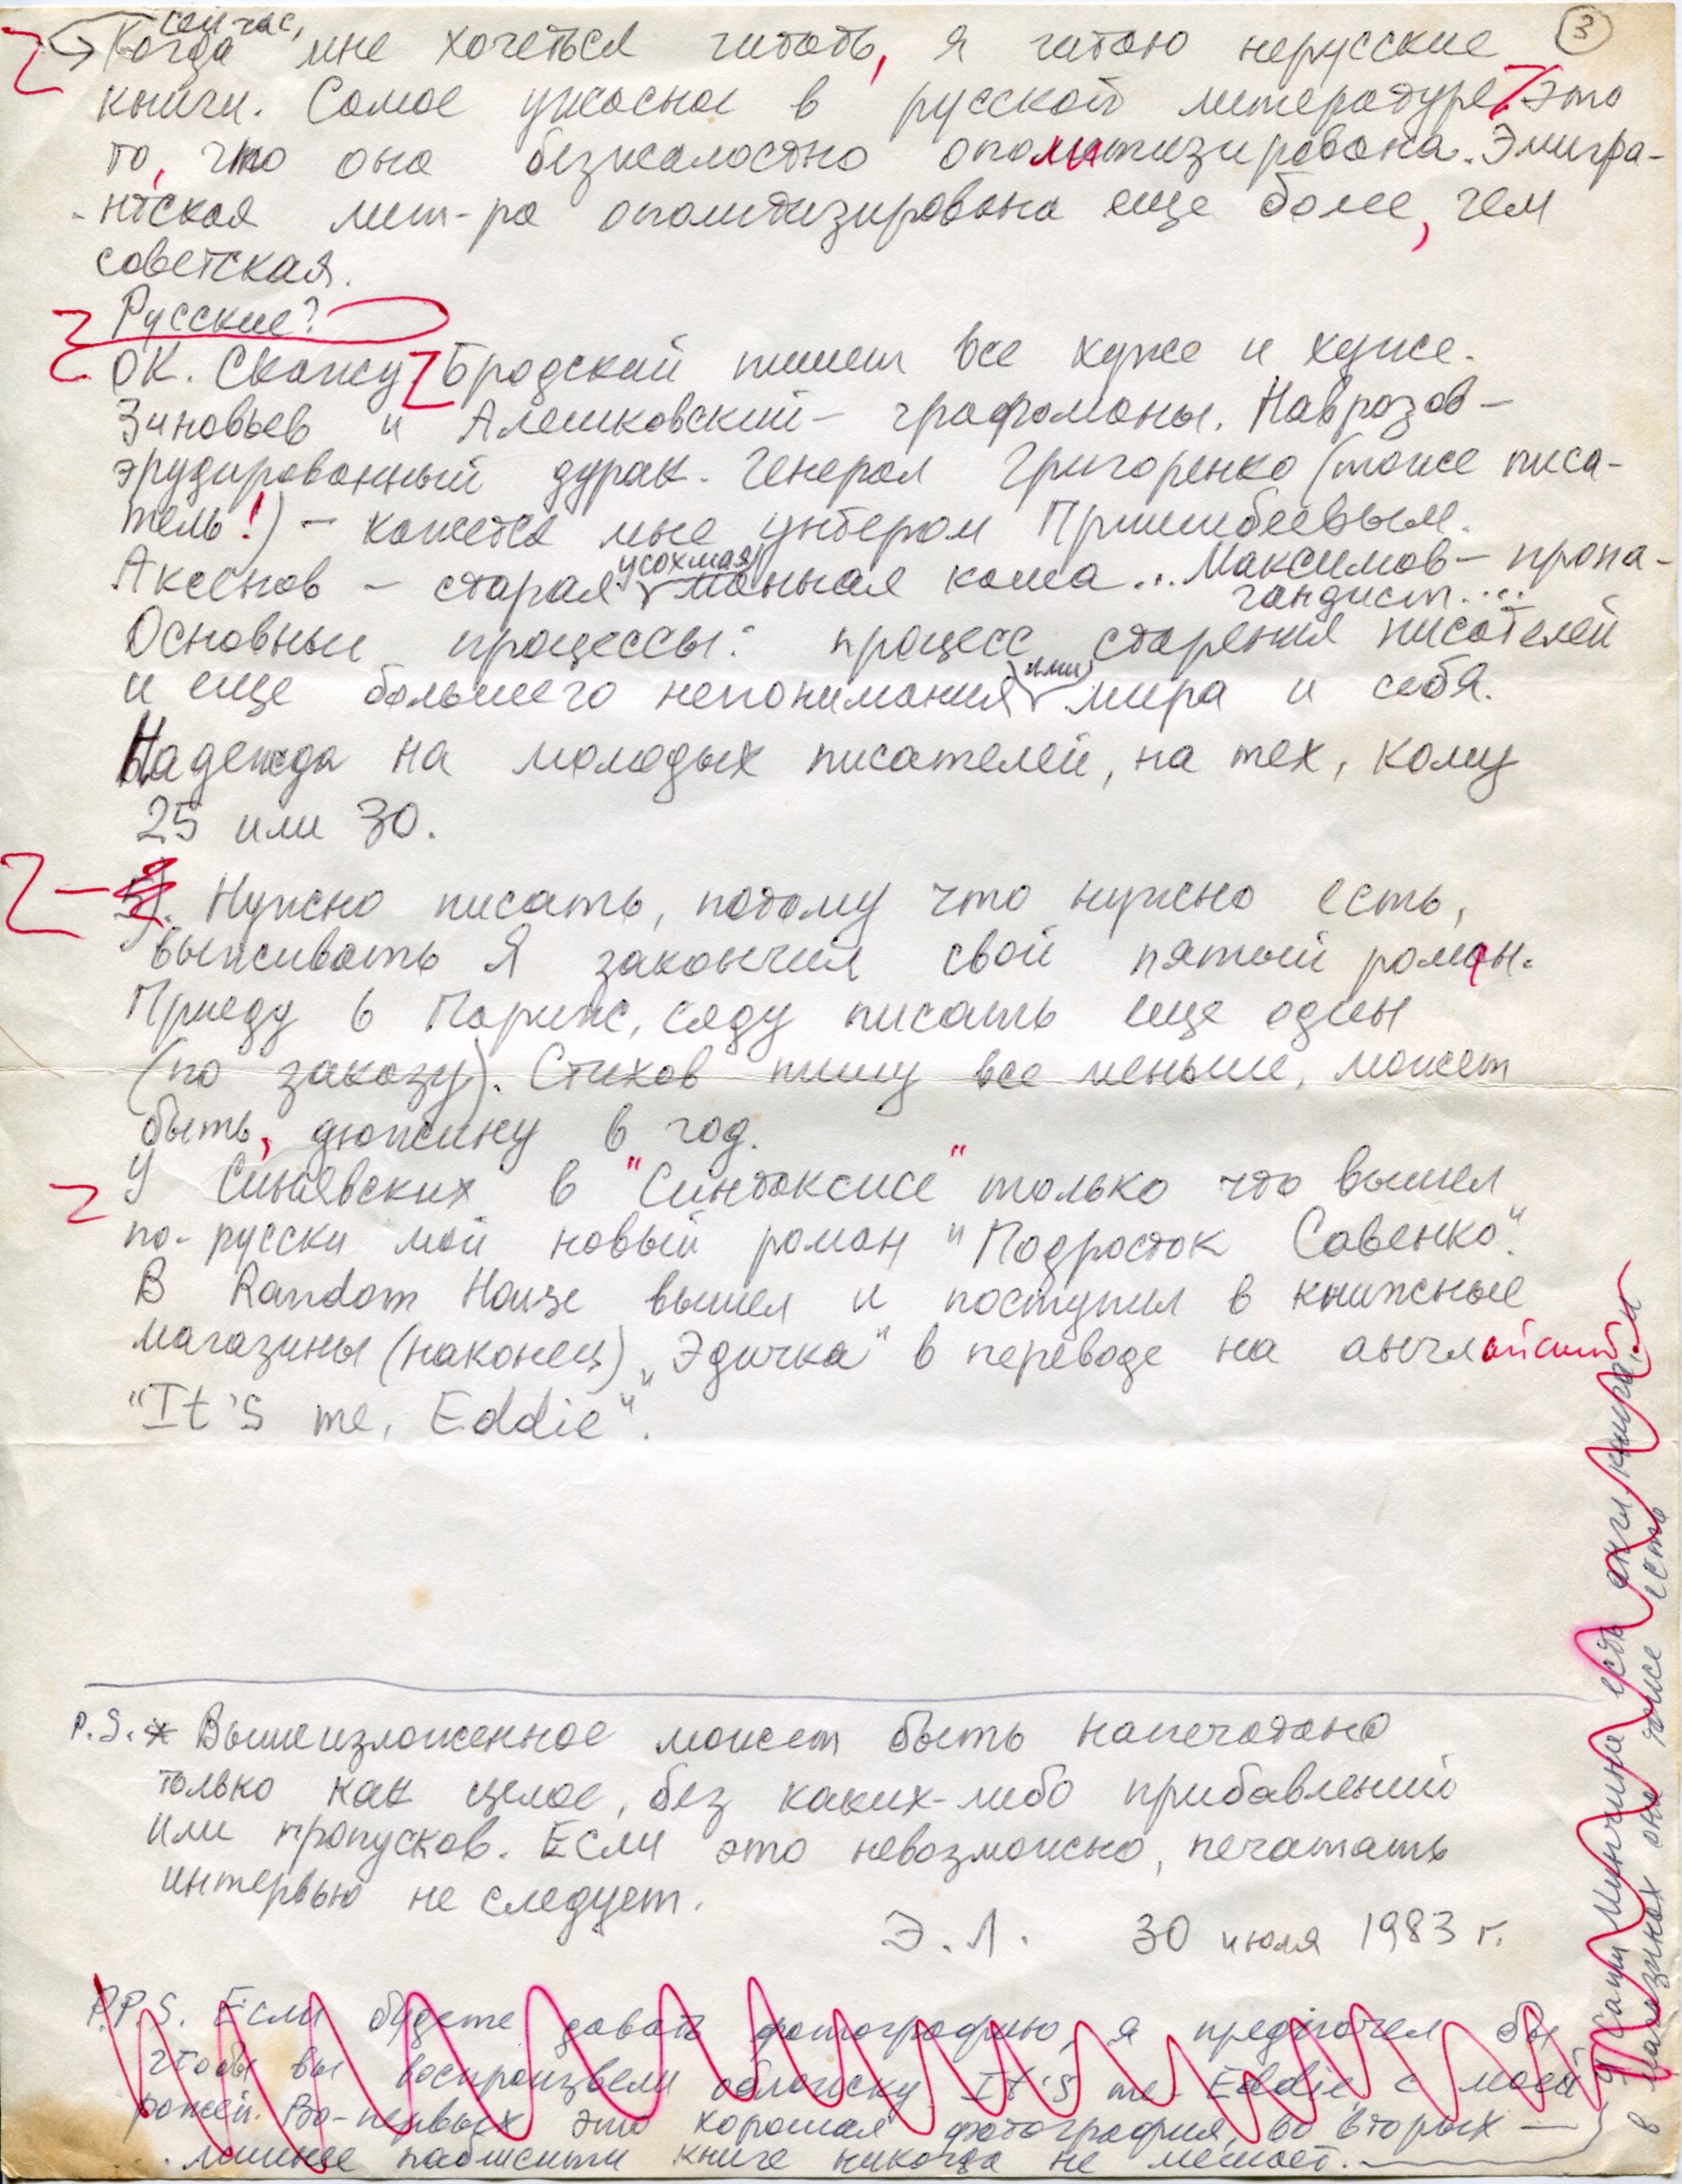 3
сейчас,
Когда мне хочеться читать, я читаю нерусские
книги. Самое ужасное в русской литературе это
то, что она безжалостно ополитизирована. Эмигра-
-нтская лит-ра ополитизирована еще более, чем
советская.
Русские?
ОК. Скажу Бродский пишет все хуже и хуже.
Зиновьев и Алешковский – графоманы. Наврозов –
эрудированный дурак. Генерал Григоренко (тоже писа-
тель!) – кажется мне унтером Пришибеевым.
усохшая
Аксенов – старая манная каша... Максимов – пропа-
гандист....
Основные процессы: процесс старения писателей
ими
и еще большего непонимания мира и себя.
Надежда на молодых писателей, на тех, кому
25 или 30.
5). Нужно писать, потому что нужно есть,
выживать Я закончил свой пятый роман.
Приеду в Париж, сяду писать еще один
(по заказу). Стихов пишу все меньше, может
быть, дюжину в год.
У Синявских в "Синтаксисе" только что вышел
по-русски мой новый роман "Подросток Савенко".
В Random House вышел и поступил в книжные
магазины (наконец) "Эдичка" в переводе на английский
"It's me, Eddie".
P.S.* Вышеизложенное может быть напечатано
только как целое, без каких-либо прибавлений
или пропусков. Если это невозможно, печатать
интервью не следует.
Э.Л. 30 июля 1983 г.
P.P.S. Если будете давать фотографию, я предпочел бы
чтобы вы воспроизвели обложку It's me Eddie, с моей
рожей. Во-первых это хорошая фотография, во вторых –
лишнее паблисити книге никогда не мешает.
У Саши Минчина есть англ. книга, и
в магазинах она тоже есть